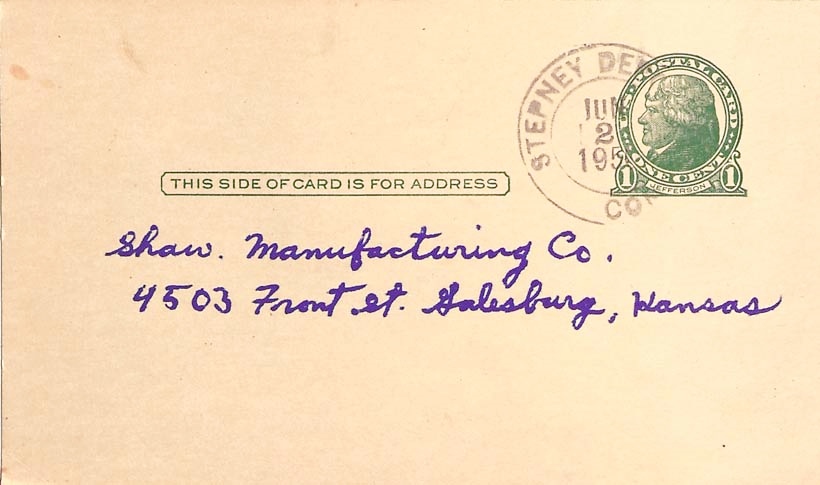 STEPNEY DEP
JUN
2
195
CON
POSTAL CARD
ONE CENT
1 JEFFERSON 1
THIS SIDE OF CARD IS FOR ADDRESS
Shaw. Manufacturing Co.
4503 Front St. Galesburg, Kansas